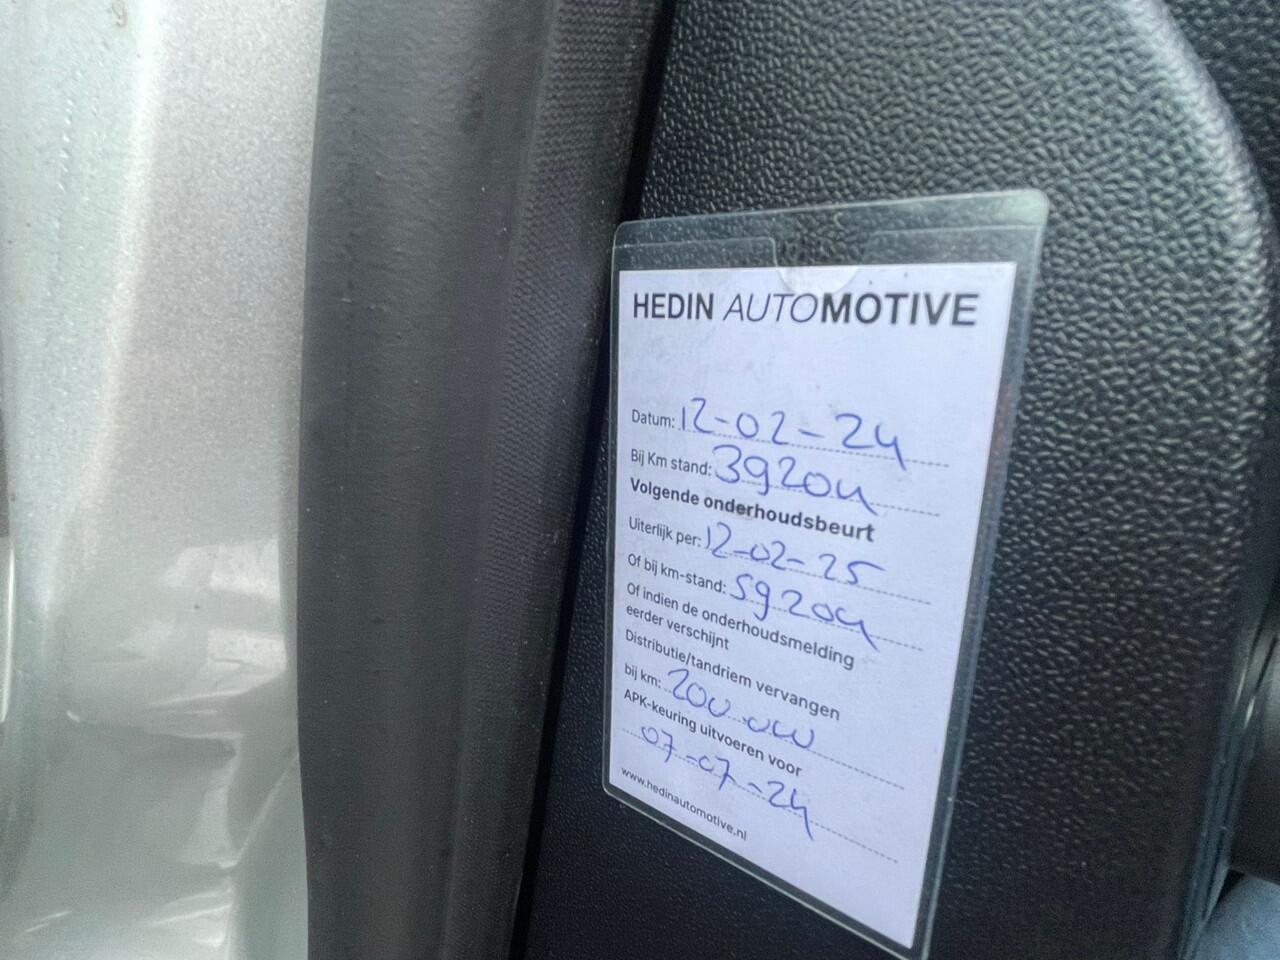 HEDIN AUTOMOTIVE
Datum: 12-02-24
Bij Km stand: 39204
Volgende onderhoudsbeurt
Uiterlijk per: 12-02-25
Of bij km-stand: 59204
Of indien de onderhoudsmelding
eerder verschijnt
Distributie/tandriem vervangen
bij km: 200.000
APK-keuring uitvoeren voor
07-07-24
www.hedinautomotive.nl